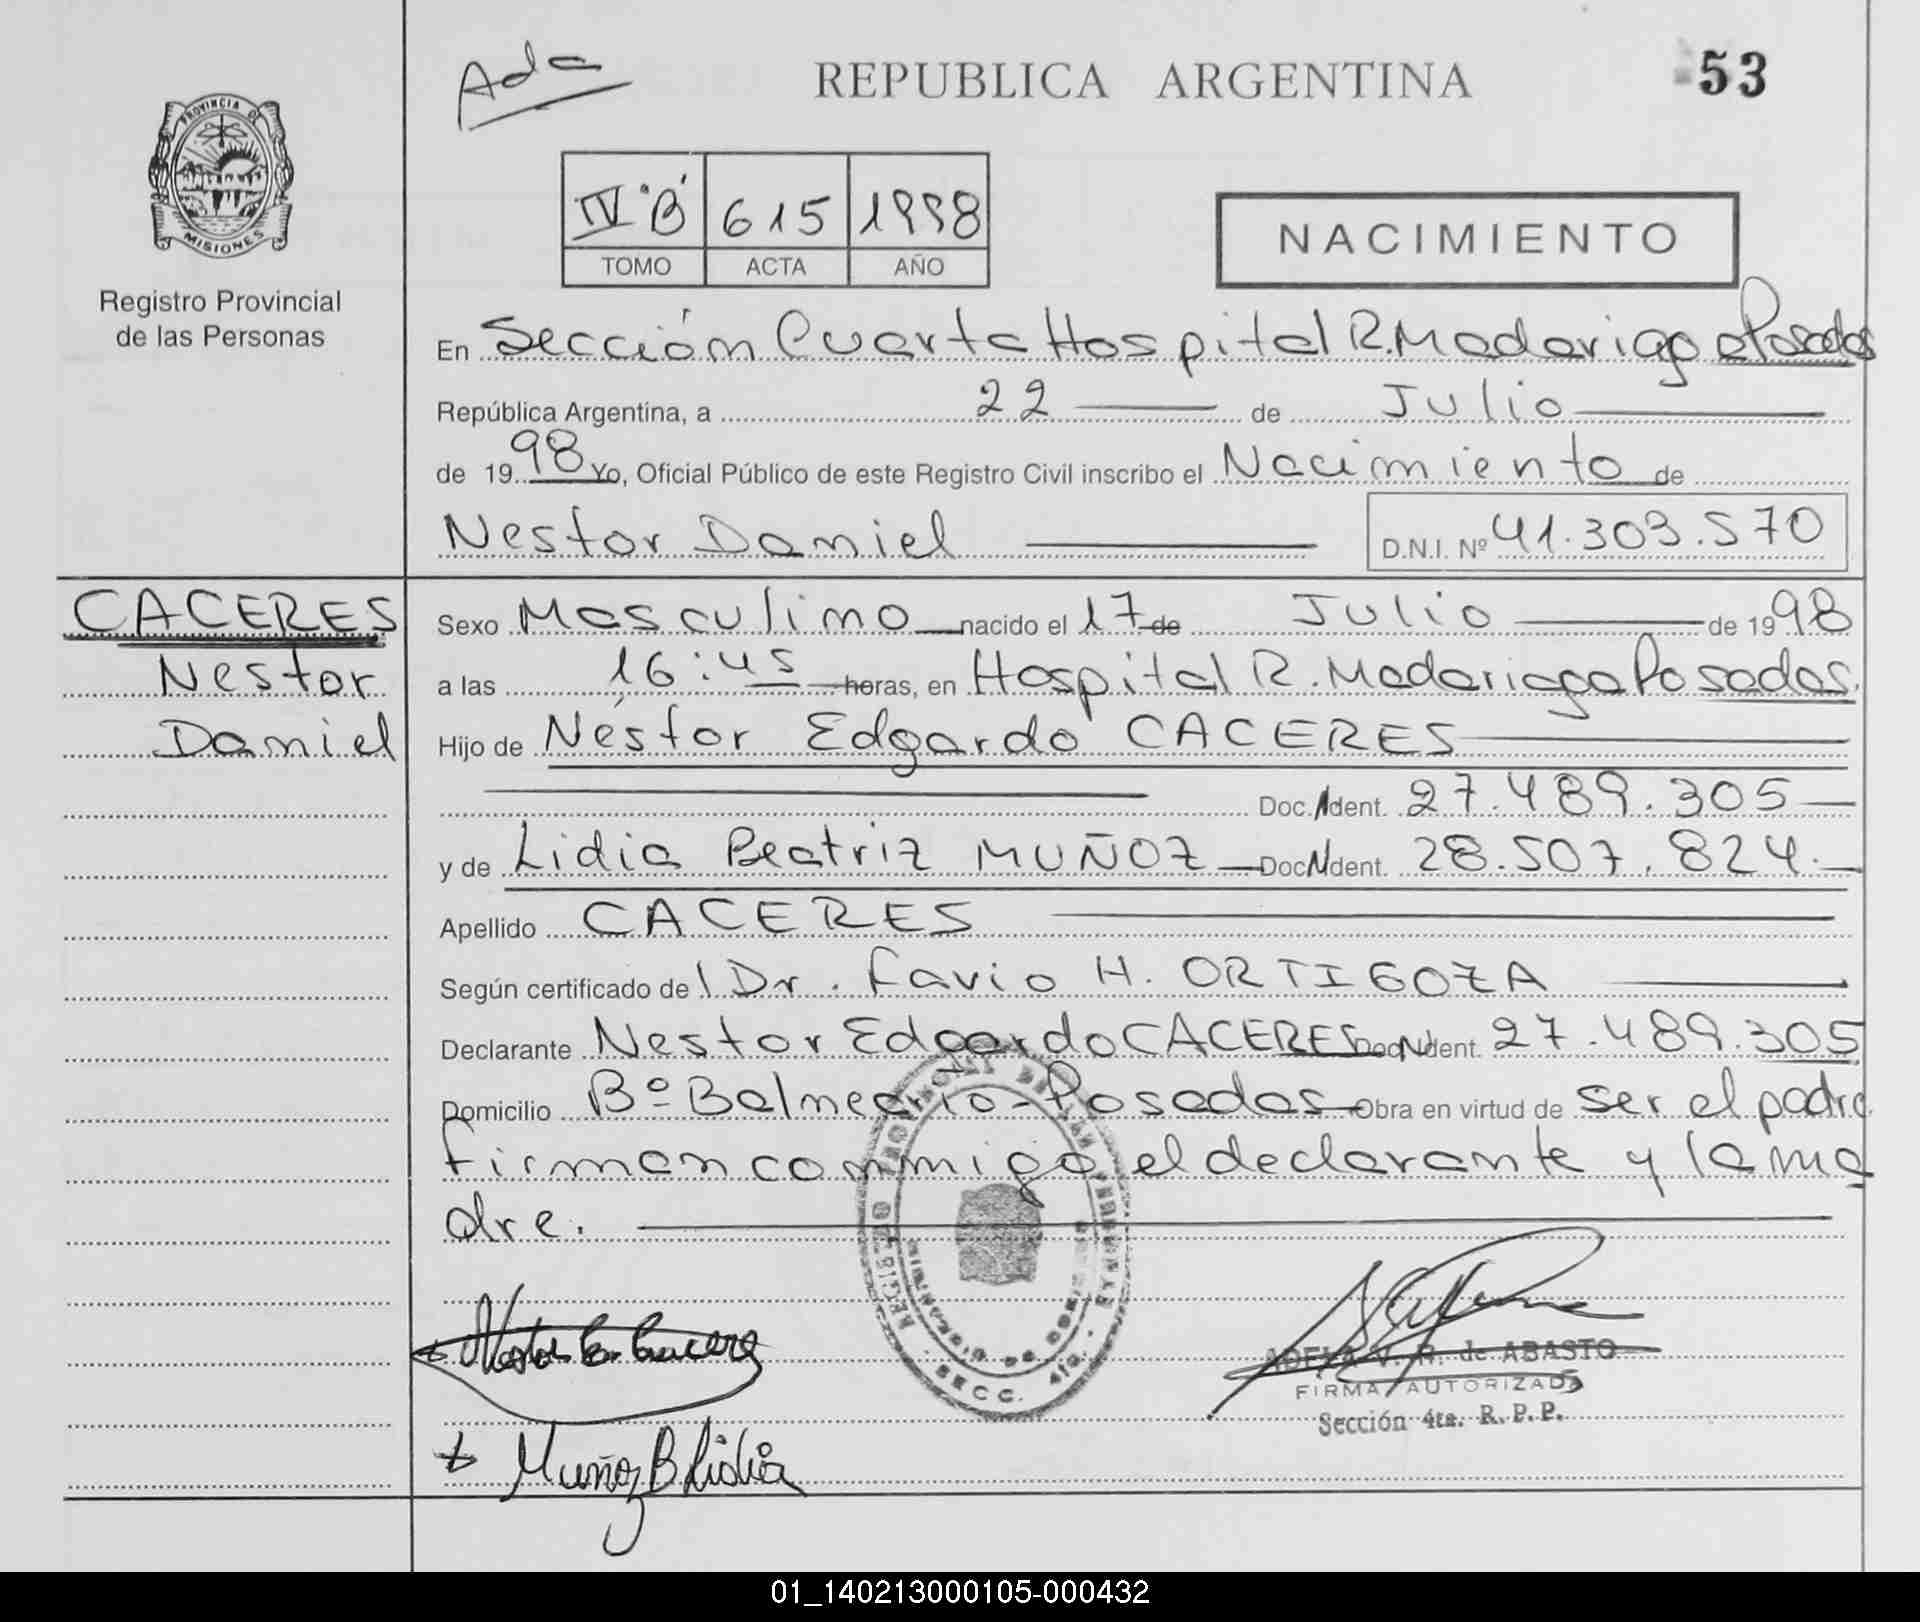 Ada
REPUBLICA ARGENTINA
53
PROVINCIA DE
MISIONES
Registro Provincial
de las Personas
IV "B" 615 1998
TOMO ACTA AÑO
NACIMIENTO
En Sección Cuarta Hospital R. Madariaga Posadas
República Argentina, a 22 de Julio
de 1998 Yo, Oficial Público de este Registro Civil inscribo el Nacimiento de
Nestor Daniel D.N.I. Nº 41.303.570
CACERES
Nestor
Daniel
Sexo Masculino nacido el 17 de Julio de 1998
a las 16:45 horas, en Hospital R. Madariaga Posadas.
Hijo de Néstor Edgardo CACERES
Doc. Ident. 27.489.305
y de Lidia Beatriz MUÑOZ Doc. Ident. 28.507.824.
Apellido CACERES
Según certificado del Dr. Favio H. ORTIGOZA
Declarante Nestor Edgardo CACERES Doc. Ident. 27.489.305
Domicilio Bº Balneario - Posadas Obra en virtud de ser el padre
firman conmigo el declarante y la ma
dre.
REGISTRO PROVINCIAL DE LAS PERSONAS
SECC. 4ta.
ADELA V. R. de ABASTO
FIRMA AUTORIZADA
Sección 4ta. R. P. P.
Muñoz B Lidia
01_140213000105-000432